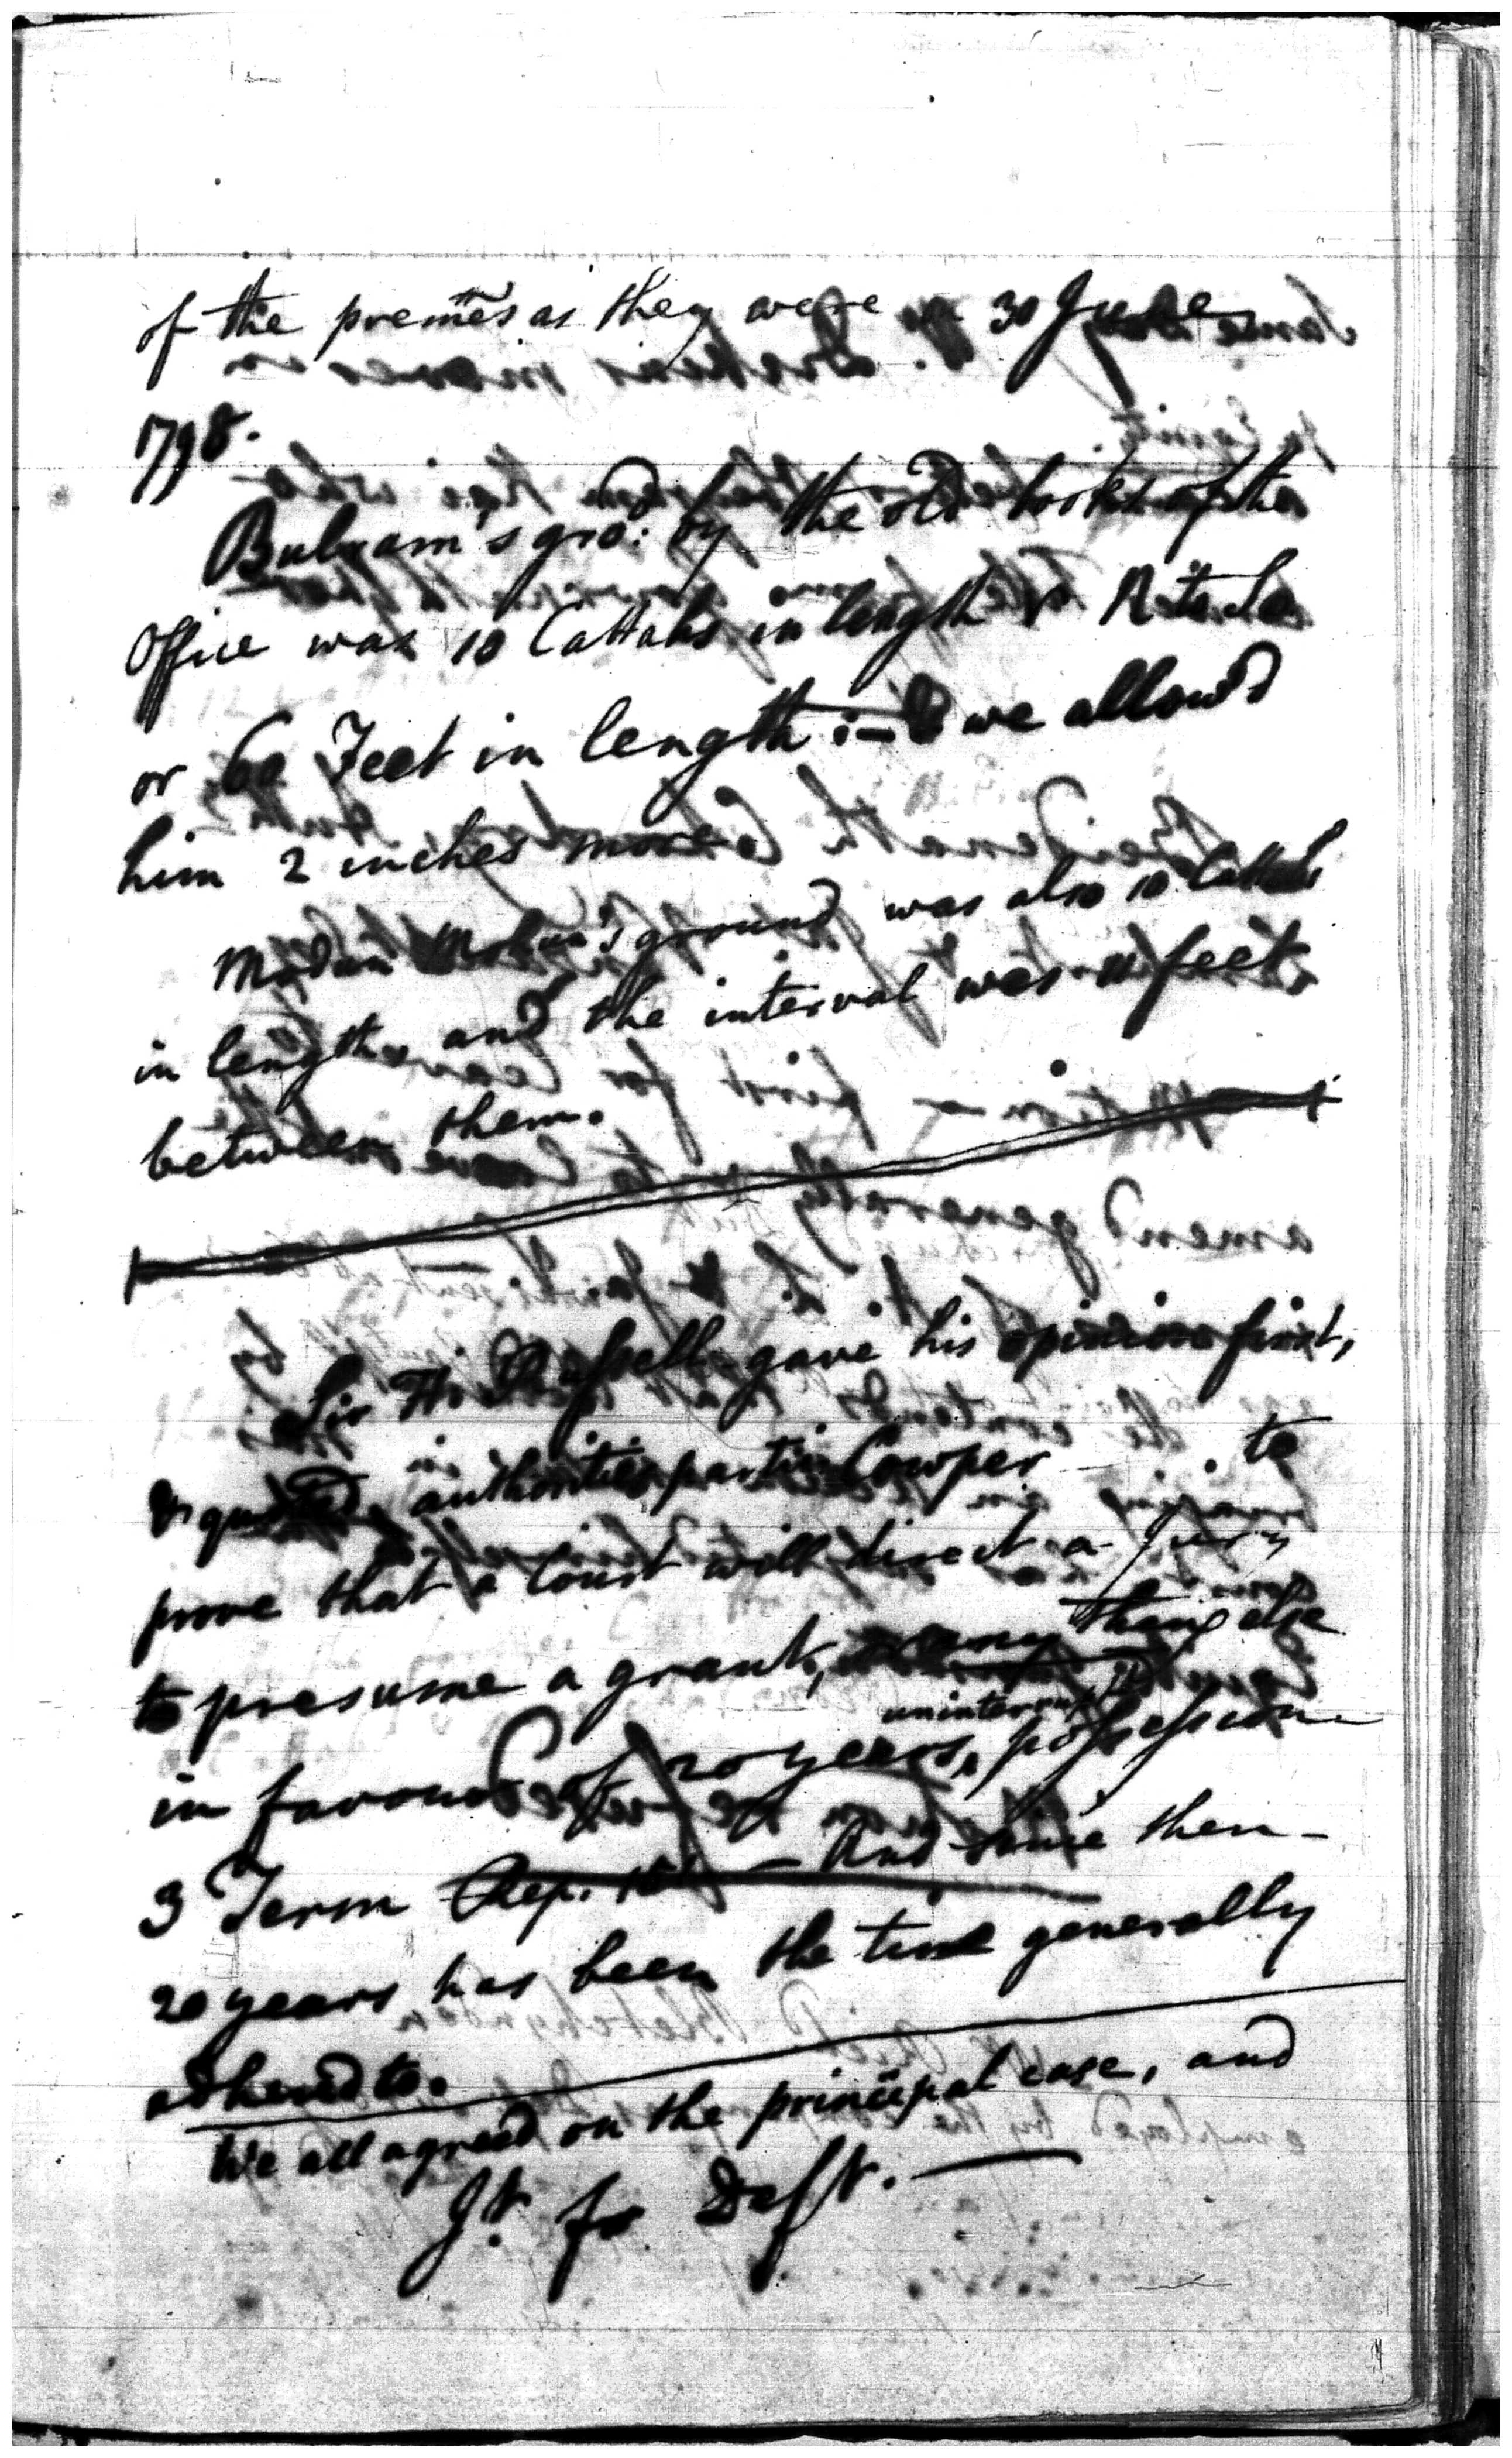 of the premēs as they were 30 June
1798.
Bulram's gro: by the old books of the
Office was 10 Cattahs in length
or 60 Feet in length :- & we allow'd
him 2 inches more
Modun Mohun's ground was also 10 Cattahs
in length and the interval was 11 feet
between them.
Sir H. Russell gave his opinion first,
& quoted authorities partic Cowper to
prove that a Court will direct a Jury
to presume a grant, any thing else
in favour of 20 years, uninterrupted possession
3 Term Rep. And since then -
20 years has been the time generally
adhered to.
We all agreed on the principal case, and
Jt. for Deft. —